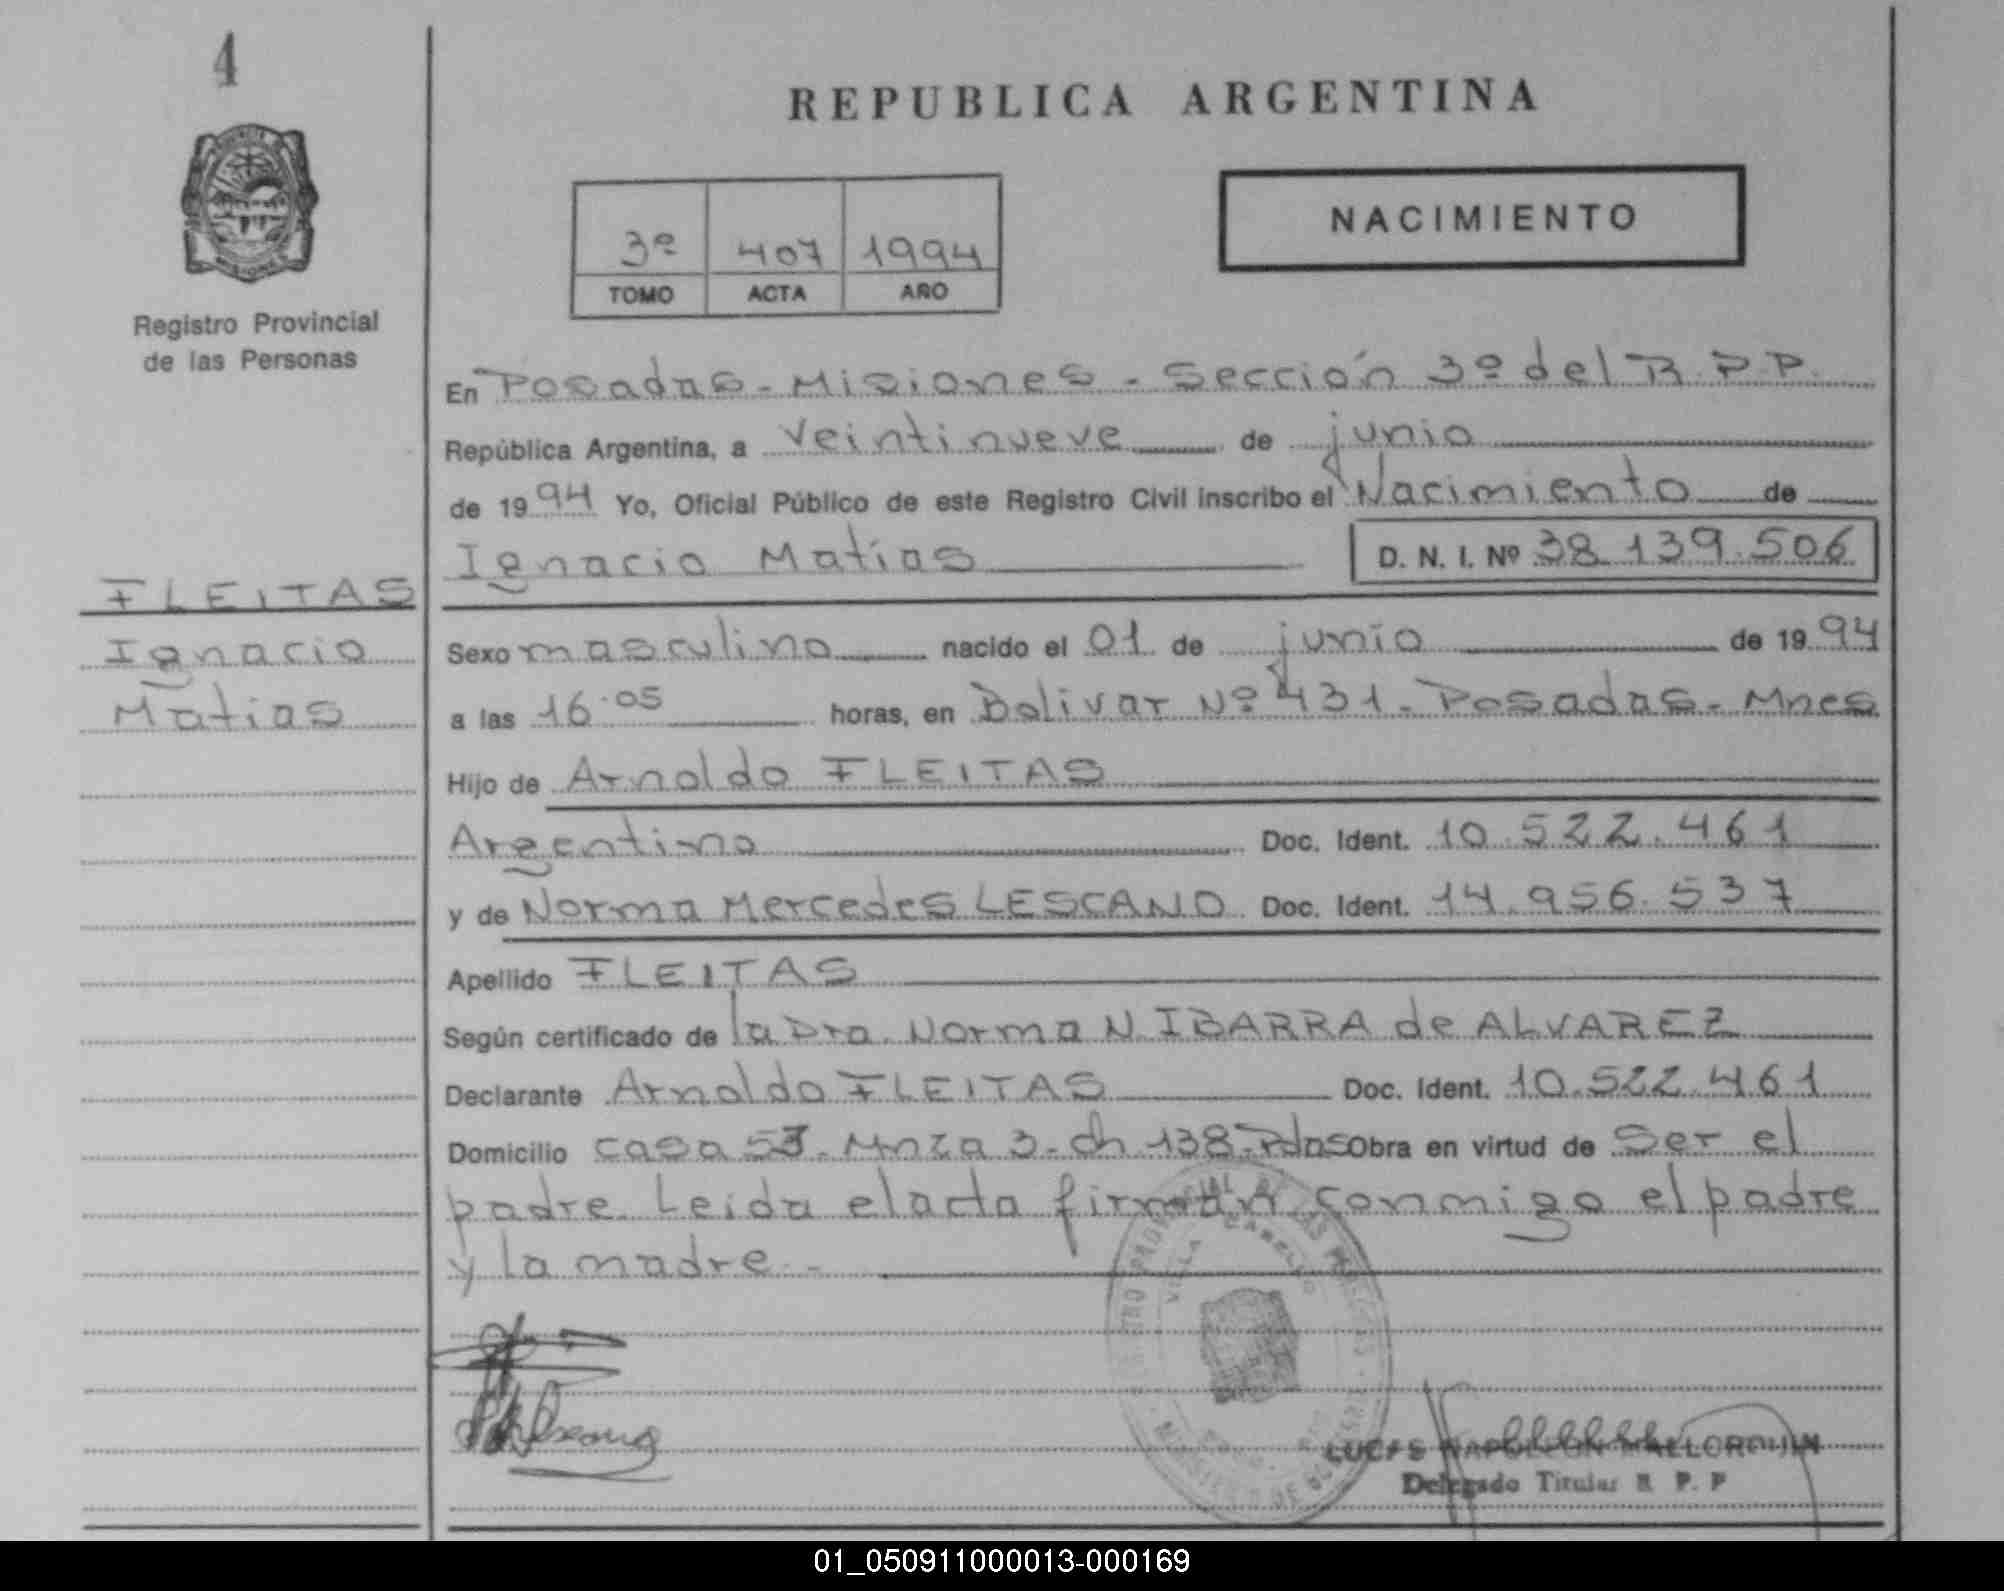 4
REPUBLICA ARGENTINA
NACIMIENTO
3º 407 1994
TOMO ACTA AÑO
MISIONES
Registro Provincial
de las Personas
En Posadas - Misiones - Sección 3º del R.P.P.
República Argentina, a veintinueve de junio
de 1994 Yo, Oficial Público de este Registro Civil inscribo el Nacimiento de
Ignacio Matías D. N. I. Nº 38.139.506
FLEITAS
Ignacio
Matias
Sexo masculino nacido el 01 de junio de 1994
a las 16.05 horas, en Bolivar Nº 431 - Posadas - Mnes
Hijo de Arnoldo FLEITAS
Argentino Doc. Ident. 10.522.461
y de Norma Mercedes LESCANO Doc. Ident. 14.956.537
Apellido FLEITAS
Según certificado de la Dra. Norma N. IBARRA de ALVAREZ
Declarante Arnoldo FLEITAS Doc. Ident. 10.522.461
Domicilio casa 53 - Mnza 3 - ch 138 - Pdas Obra en virtud de Ser el
padre. Leida el acta firman conmigo el padre
y la madre. -
VILLA CABELLO
LUCAS NAPOLEON MALLORQUIN
Delegado Titular R. P. P
01_050911000013-000169